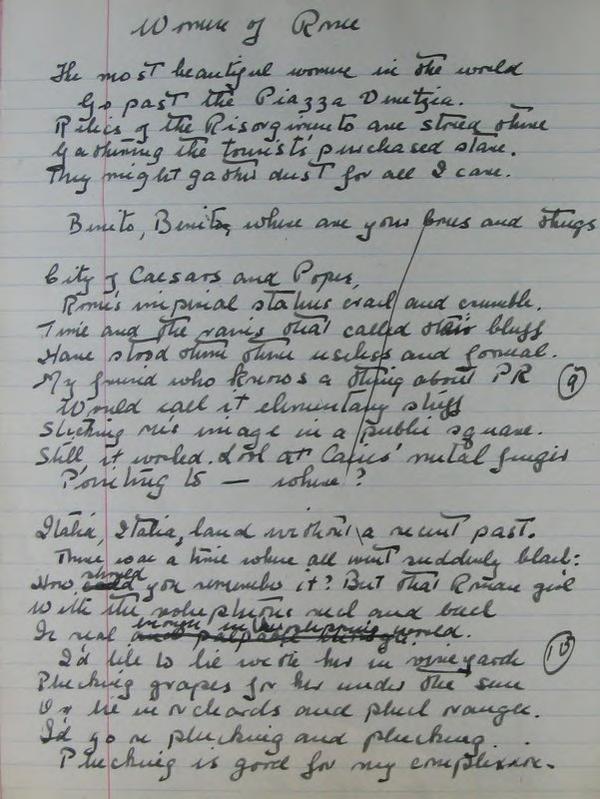 Women of Rome
The most beautiful women in the world
Go past the Piazza Venezia.
Relics of the Risorgimento are stored there
Gathering the tourists' purchased stare.
They might gather dust for all I care.
Benito, Benito, where are your bones and thugs
City of Caesars and Popes,
Rome's imperial statues crack and crumble.
Time and the that called their bluff
Have stood them there useless and formal.
My friend who knows a thing about PR
9
Would call it elementary stuff
Sticking one's image in a public square.
Still it worked. Look at Caius' metal finger
Pointing to — where?
Italia, Italia, land without a recent past.
There was a time where all went suddenly black:
How should you remember it? But that Roman girl
With the voluptuous neck and back
Is real enough in the shopping world.
I'd like to lie with her in vineyards
10
Plucking grapes for her under the sun
Or lie in orchards and pluck oranges.
I'd go on plucking and plucking...
Plucking is good for my complexion.